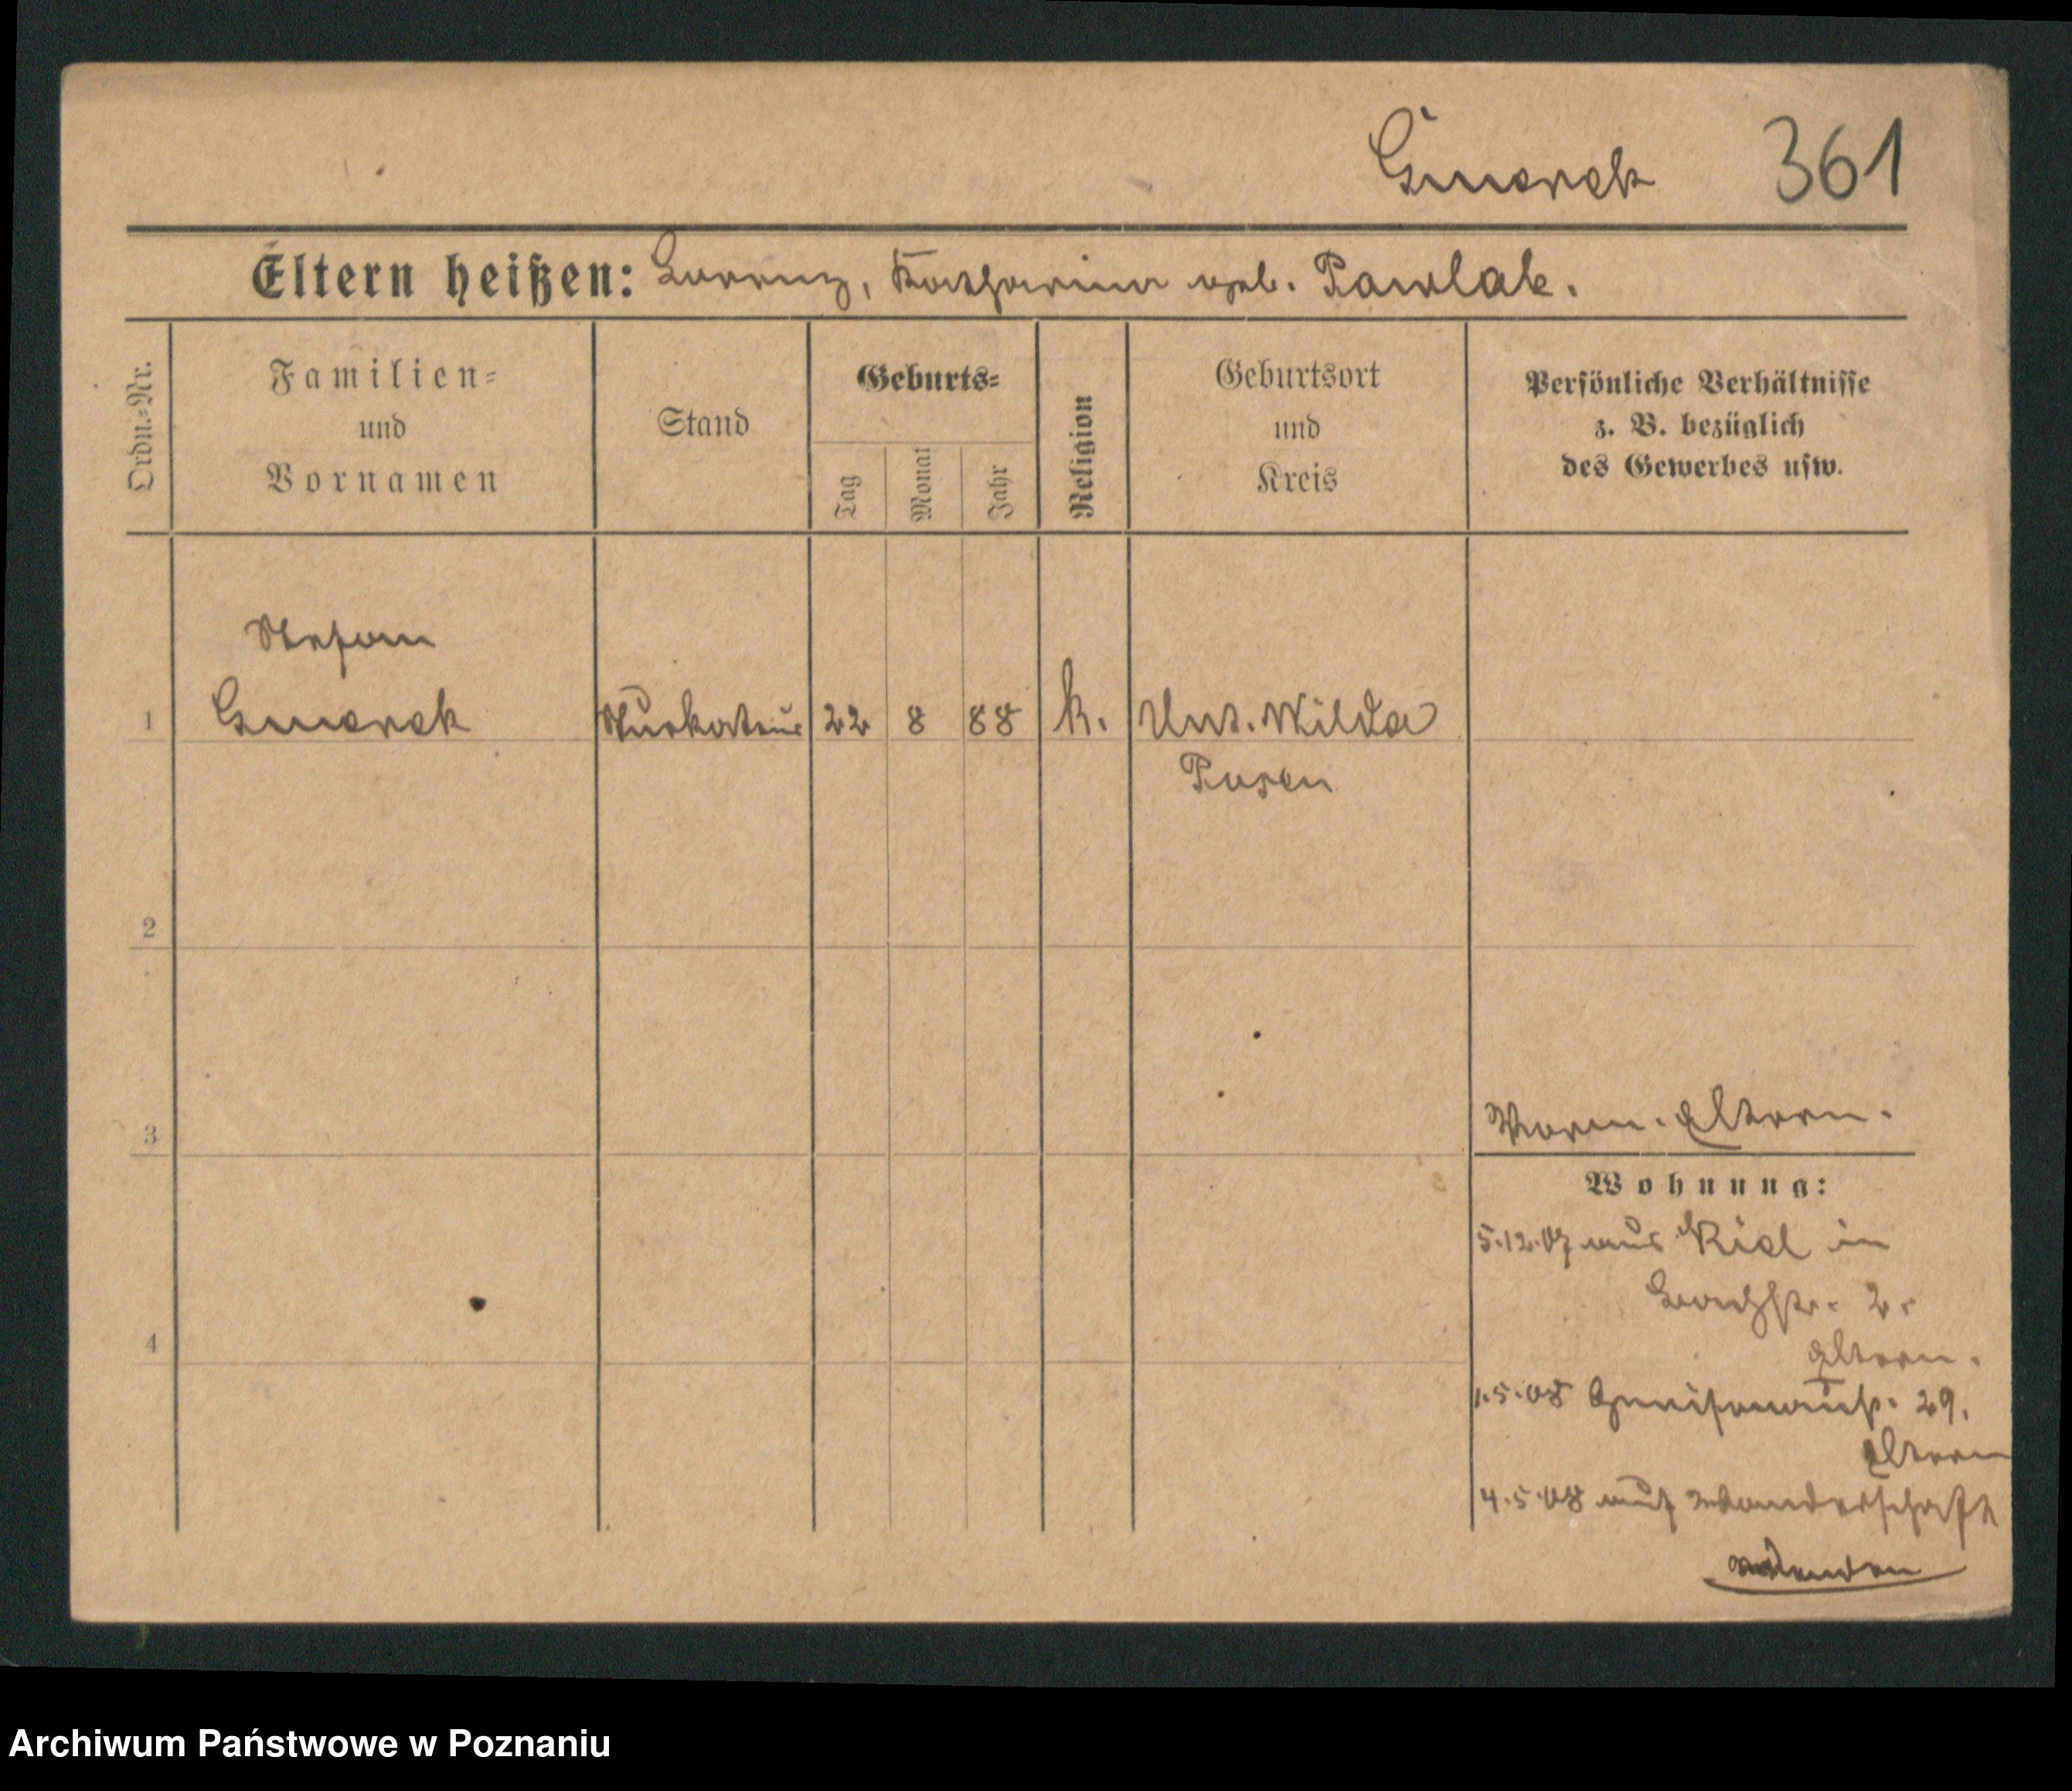 Gmerek 361
Eltern heißen: Lorenz, Katharina geb. Pawlak.
Ordn.=Nr.
Familien=
und
Vornamen
Stand
Geburts=
Tag
Monat
Jahr
Religion
Geburtsort
und
Kreis
Persönliche Verhältnisse
z. B. bezüglich
des Gewerbes usw.
Stefan
1 Gmerek Stukateur 22 8 88 k. Unt. Wilda
Posen
2
3
Eltern.
Wohnung:
5.12.07 aus Kiel in
Bachstr. 2.
Eltern.
4
1.5.08 Gneisenaust. 29.
Eltern
4.5.08 auf Wanderschaft
Archiwum Państwowe w Poznaniu